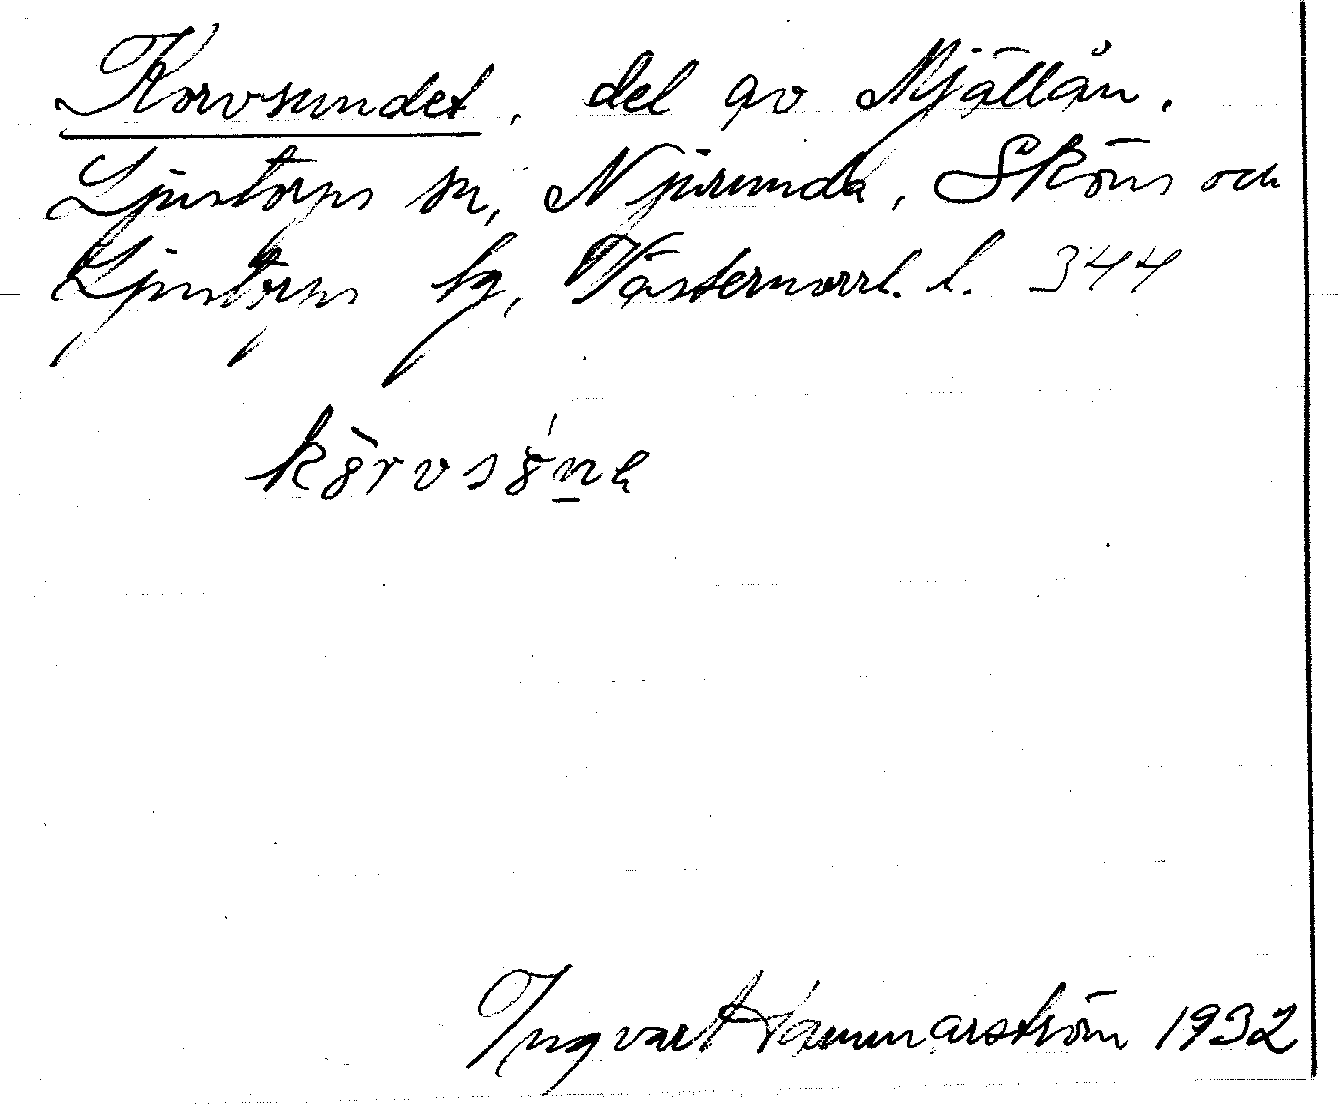 Korvsundet, del av Mjällån.
Ljustorps sn, Njurunda, Sköns och
Ljustorps tg, Västernorrl. l. 344
Ingvart Hammarström 1932